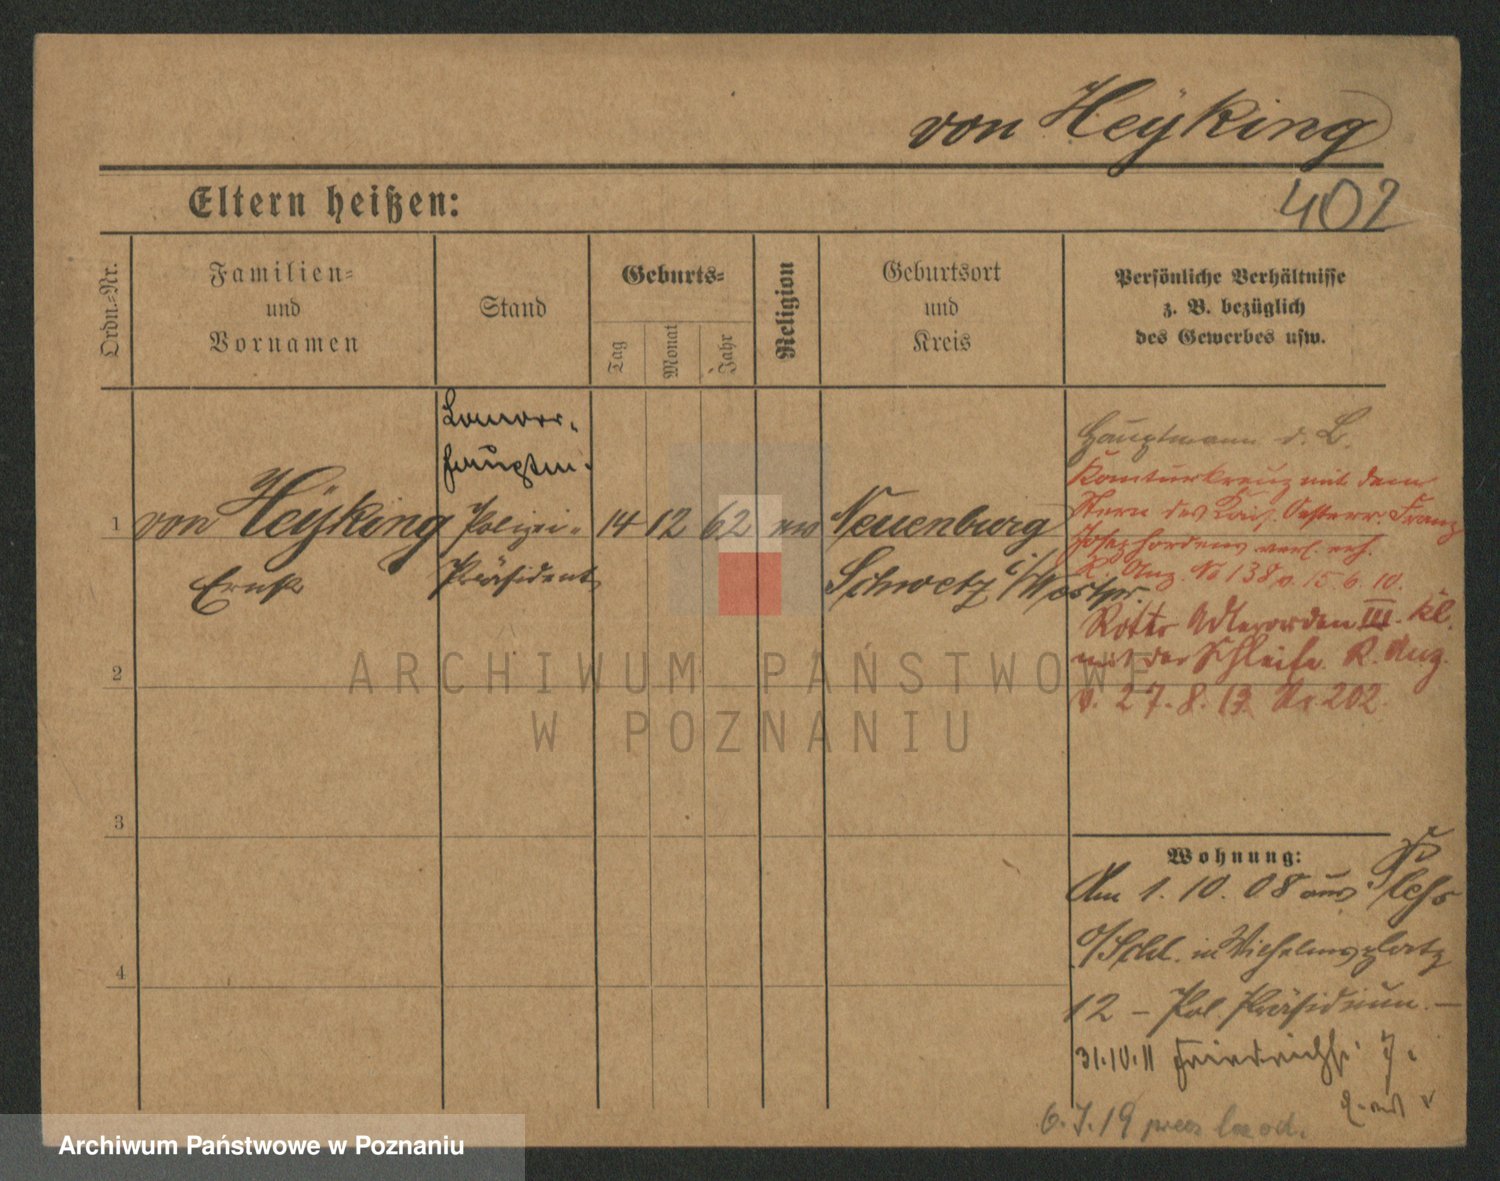 von Heÿking
402
Eltern heißen:
Ordn.=Nr.
Familien=
und
Vornamen
Stand
Geburts=
Tag
Monat
Jahr
Religion
Geburtsort
und
Kreis
Persönliche Verhältnisse
z. B. bezüglich
des Gewerbes usw.
1
von Heÿking
Ernst
Polizei-
Präsident
14 12 62 ev
Neuenburg
Schwetz i/Westpr.
Hauptmann d. L.
Komturkreuz mit dem
Stern des Kais. Oesterr. Franz
Josephordens verl. erh.
R. Anz. No 138 v. 15.6.10.
Roter Adlerorden III. Kl.
mit der Schleife R. Anz.
v. 27.8.13 Nr. 202.
2
3
4
Wohnung:
Am 1.10.08 aus Pleß
O/Schl. in Wilhelmsplatz
12 – Pol. Präsidium. –
31.10.11 Friedrichstr. 7.
6.I.19
ARCHIWUM PAŃSTWOWE
W POZNANIU
Archiwum Państwowe w Poznaniu